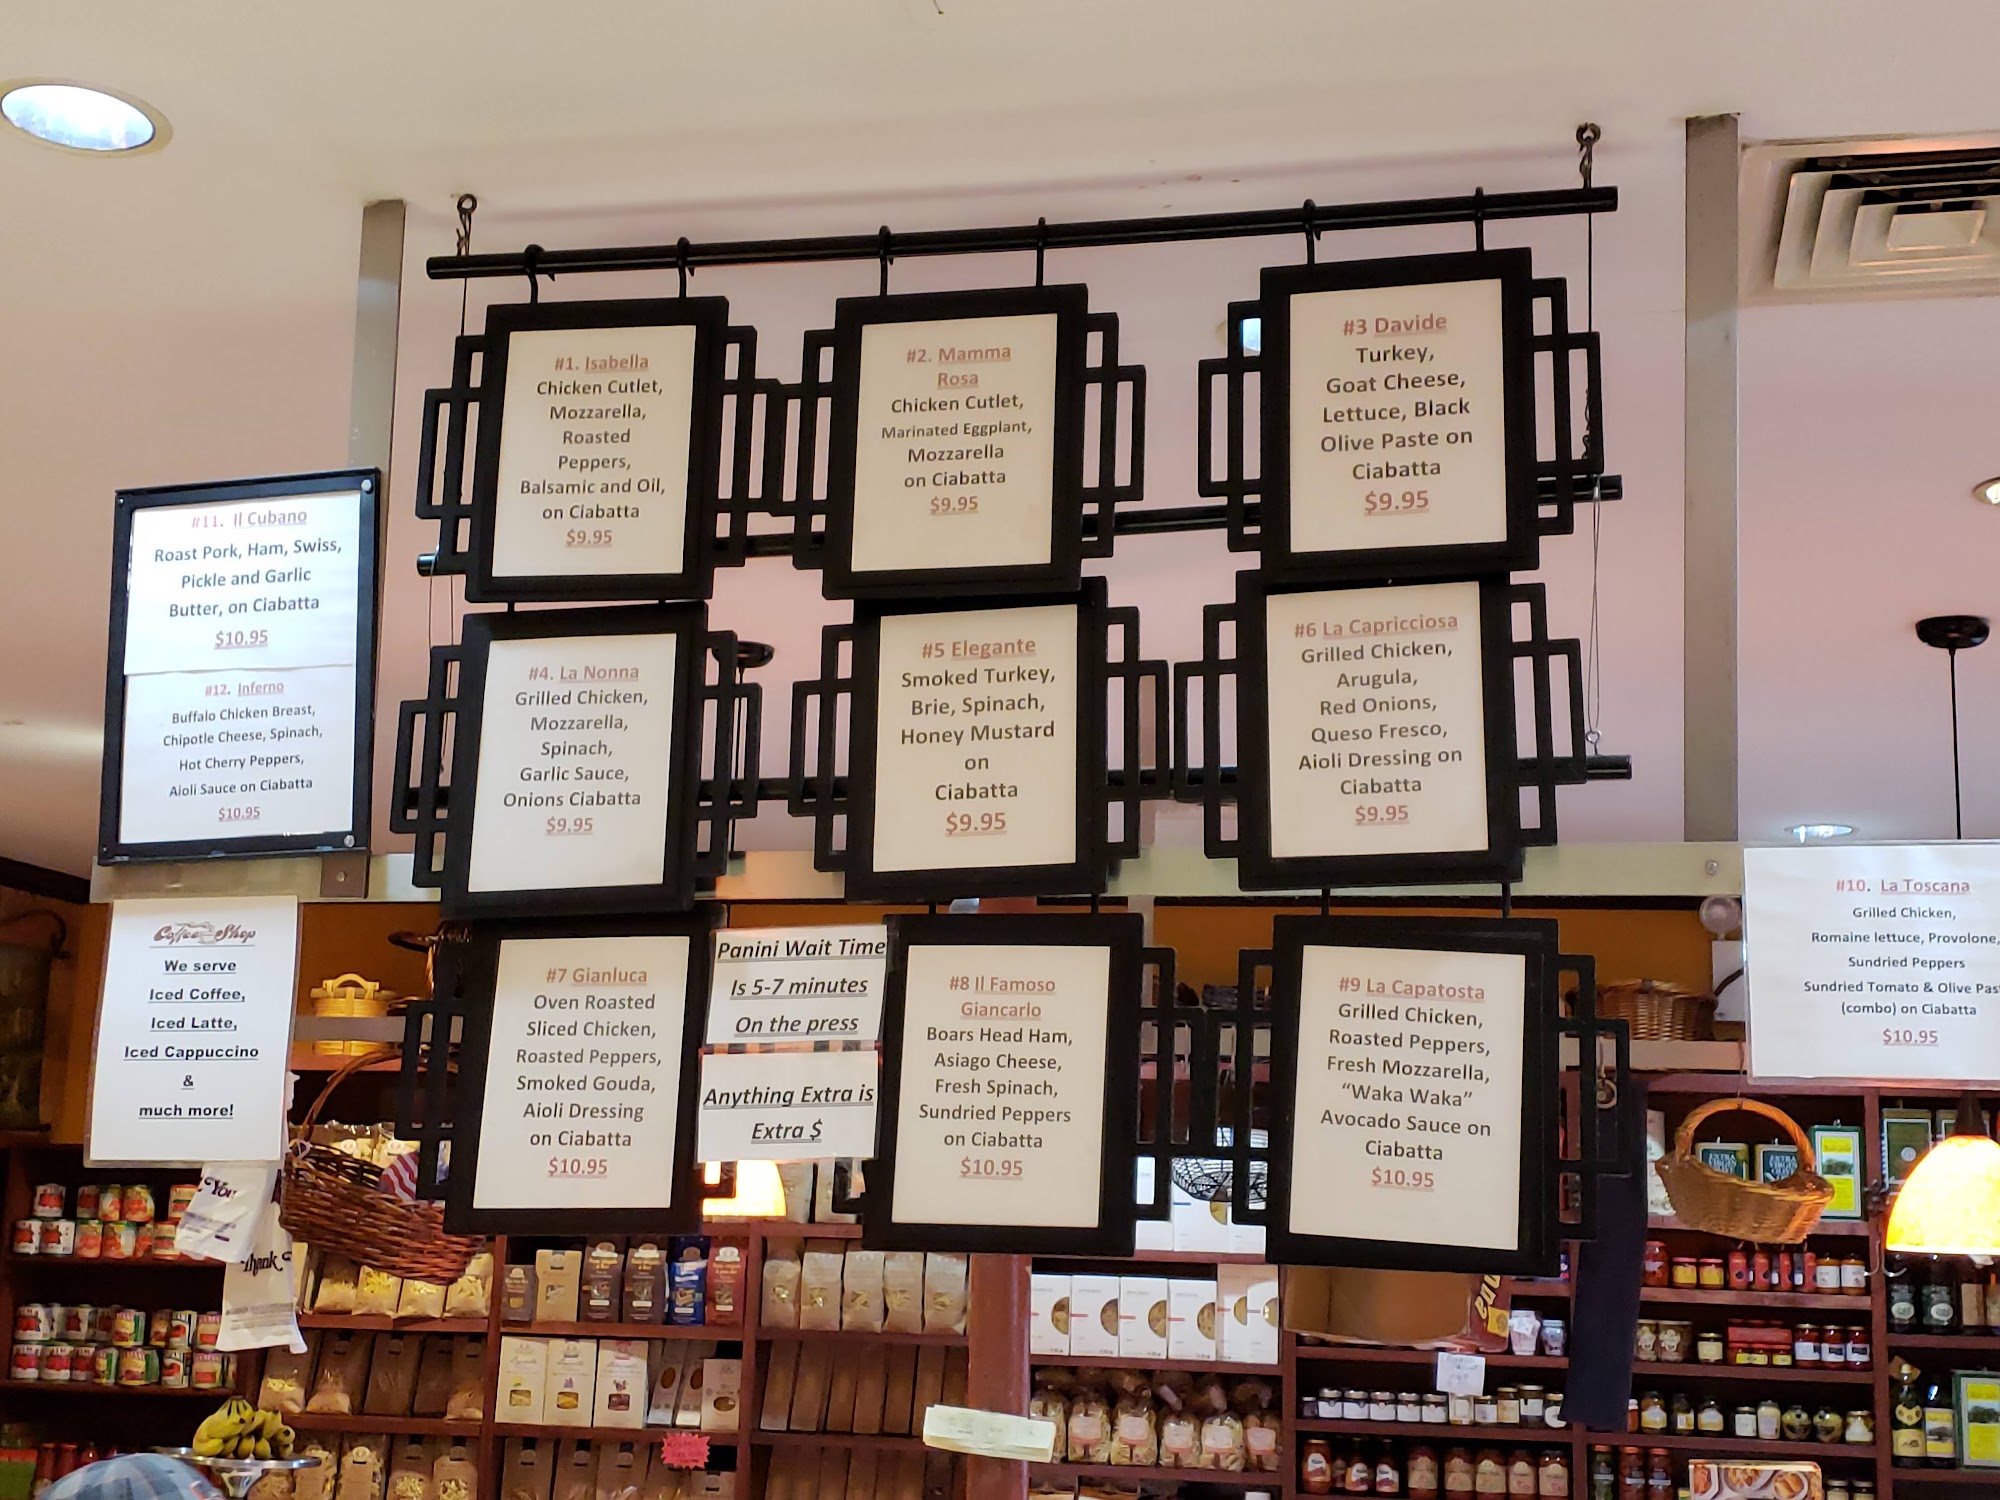 #1. Isabella
Chicken Cutlet,
Mozzarella,
Roasted
Peppers,
Balsamic and Oil,
on Ciabatta
$9.95
#2. Mamma
Rosa
Chicken Cutlet,
Marinated Eggplant,
Mozzarella
on Ciabatta
$9.95
#3 Davide
Turkey,
Goat Cheese,
Lettuce, Black
Olive Paste on
Ciabatta
$9.95
#11. Il Cubano
Roast Pork, Ham, Swiss,
Pickle and Garlic
Butter, on Ciabatta
$10.95
#12. Inferno
Buffalo Chicken Breast,
Chipotle Cheese, Spinach,
Hot Cherry Peppers,
Aioli Sauce on Ciabatta
$10.95
#4. La Nonna
Grilled Chicken,
Mozzarella,
Spinach,
Garlic Sauce,
Onions Ciabatta
$9.95
#5 Elegante
Smoked Turkey,
Brie, Spinach,
Honey Mustard
on
Ciabatta
$9.95
#6 La Capricciosa
Grilled Chicken,
Arugula,
Red Onions,
Queso Fresco,
Aioli Dressing on
Ciabatta
$9.95
Coffee Shop
We serve
Iced Coffee,
Iced Latte,
Iced Cappuccino
&
much more!
#7 Gianluca
Oven Roasted
Sliced Chicken,
Roasted Peppers,
Smoked Gouda,
Aioli Dressing
on Ciabatta
$10.95
Panini Wait Time
Is 5-7 minutes
On the press
Anything Extra is
Extra $
#8 Il Famoso
Giancarlo
Boars Head Ham,
Asiago Cheese,
Fresh Spinach,
Sundried Peppers
on Ciabatta
$10.95
#9 La Capatosta
Grilled Chicken,
Roasted Peppers,
Fresh Mozzarella,
“Waka Waka”
Avocado Sauce on
Ciabatta
$10.95
#10. La Toscana
Grilled Chicken,
Romaine lettuce, Provolone,
Sundried Peppers
Sundried Tomato & Olive Pas
(combo) on Ciabatta
$10.95
You
Thank
EXTRA
EXTRA